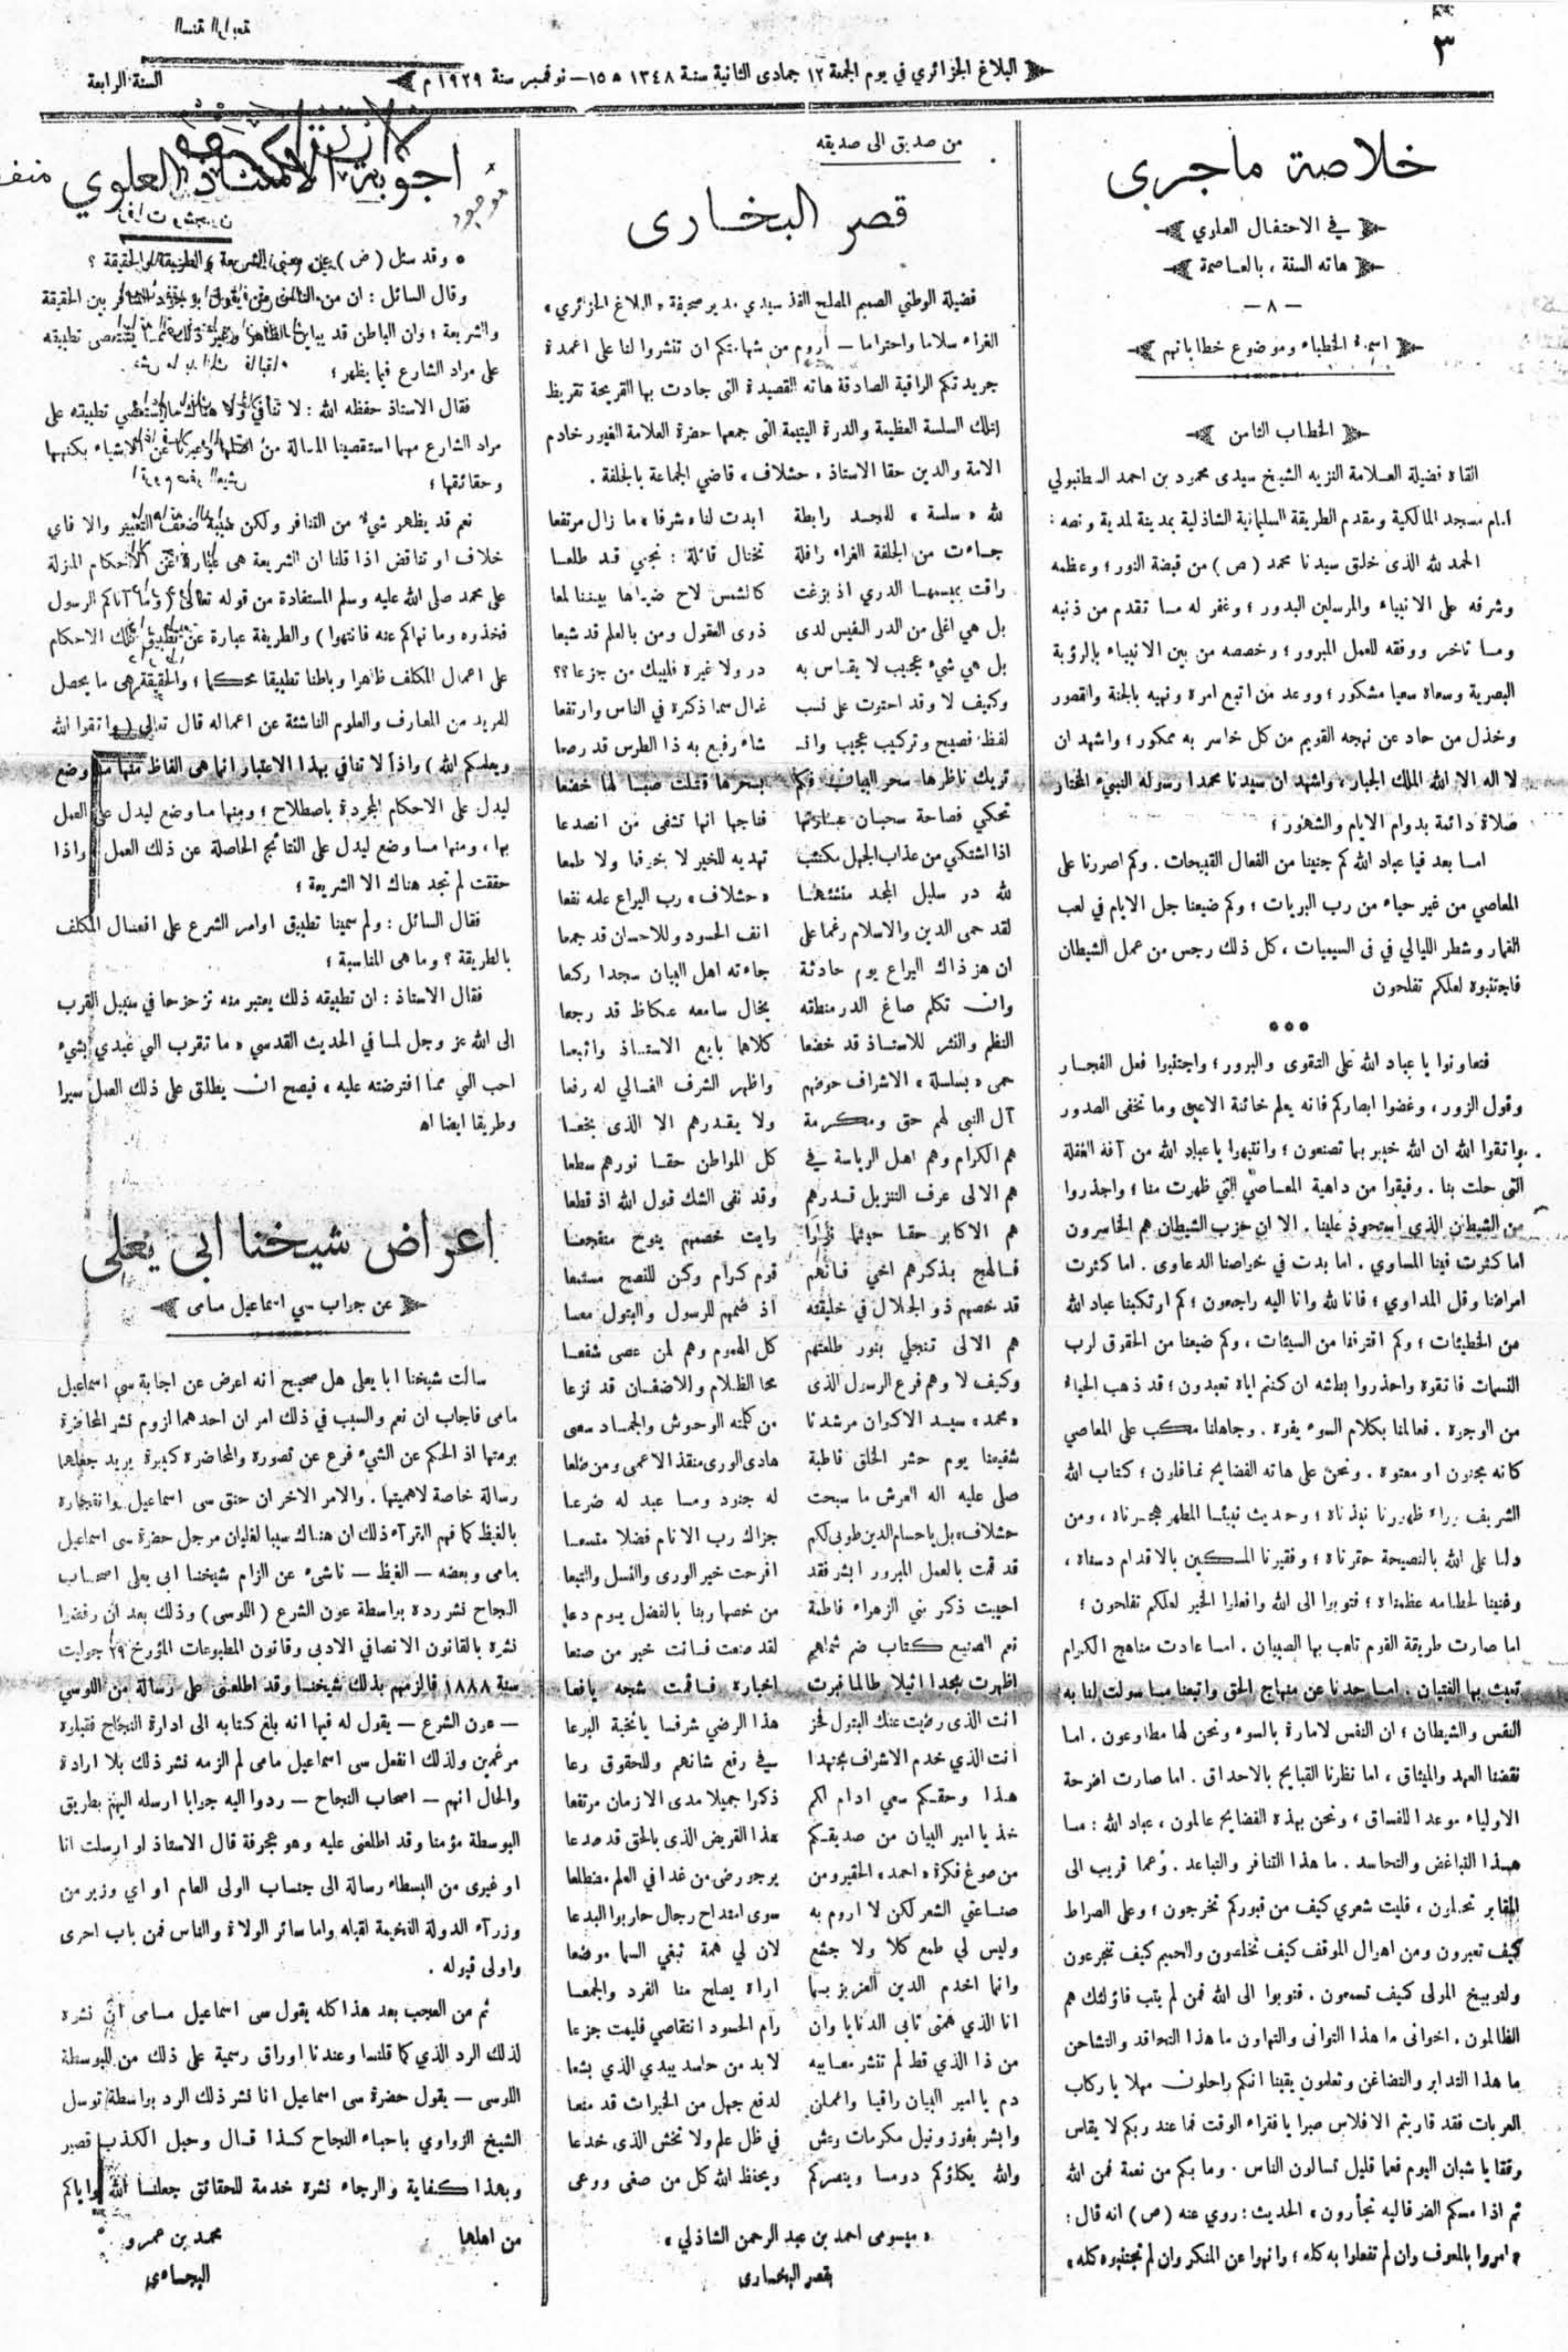 ٣
البلاغ الجزائري في يوم الجمعة ١٢ جمادى الثانية سنة ١٣٤٨ ه ١٥ — نوفمبر سنة ١٩٢٩ م
السنة الرابعة
خلاصة ماجرى
في الاحتفال العلوي
هاته السنة ، بالعاصمة
— ٨ —
اسماء الخطباء وموضوع خطاباتهم
الخطاب الثامن
القاه فضيلة العلامة النزيه الشيخ سيدى محمود بن احمد السطنبولي
امام مسجد المالكية ومقدم الطريقة السليمانية الشاذلية بمدينة لمدية ونصه :
الحمد لله الذى خلق سيدنا محمد ( ص ) من قبضة النور ؛ وعظمه
وشرفه على الانبياء والمرسلين البدور ؛ وغفر له مـا تقدم من ذنبه
ومـا تاخر ووفقه للعمل المبرور ؛ وخصصه من بين الانبياء بالرؤية
البصرية وسعاه سعيا مشكور ؛ ووعد من اتبع امره ونهيه بالجنة والقصور
وخذل من حاد عن نهجه القويم من كل خاسر به ممكور ؛ واشهد ان
لا اله الا الله الملك الجبار ، واشهد ان سيدنا محمدا رسوله النبيء المختار
صلاة دائمة بدوام الايام والشهور ؛
امـا بعد فيا عباد الله كم جنينا من الفعال القبيحات . وكم اصررنا على
المعاصي من غير حياء من رب البريات ؛ وكم ضيعنا جل الايام في لعب
القمار وشطر الليالي في السيبيات ، كل ذلك رجس من عمل الشيطان
فاجتنبوه لعلكم تفلحون
فتعاونوا يا عباد الله على التقوى والبرور ؛ واجتنبوا فعل الفجـار
وقول الزور ، وغضوا ابصاركم فانه يعلم خائنة الاعين وما تخفى الصدور
واتقوا الله ان الله خبير بما تصنعون ؛ وانتبهوا يا عباد الله من آفة الغفلة
التى حلت بنا . وفيقوا من داهية المعـاصي التي ظهرت منا ؛ واحذروا
من الشيطان الذى استحوذ علينا . الا ان حزب الشيطان هم الخاسرون
اما كثرت فينا المساوي . اما بدت في خواصنا الدعاوى . اما كثرت
امراضنا وقل المداوي ؛ فانا لله وانا اليه راجعون ؛ كم ارتكبنا عباد الله
من الخطيئات ؛ وكم اقترفنا من السيئات ، وكم ضيعنا من الحقوق لرب
النسمات فاتقوه واحذروا بطشه ان كنتم اياه تعبدون ؛ قد ذهب الحياء
من الوجوه . فعالمنا بكلام السوء يفوه . وجاهلنا مكب على المعاصي
كانه مجنون او معتوه . ونحن على هاته الفضايح غافلون ؛ كتاب الله
الشريف وراء ظهورنا نبذناه ؛ وحديث نبيئـا المطهر هجرناه ، ومن
دلنا على الله بالنصيحة حقرناه ؛ وفقيرنا المسكين بالاقدام دسناه ،
وغنينا لحطامه عظمناه ؛ فتوبوا الى الله وافعلوا الخير لعلكم تفلحون ؛
اما صارت طريقة القوم تلعب بها الصبيان . امـا عادت مناهج الكرام
تعبث بها الفتيان . امـا حدنا عن منهاج الحق واتبعنا مـا سولت لنا به
النفس والشيطان ؛ ان النفس لامارة بالسوء ونحن لها مطاوعون . اما
نقضنا العهد والميثاق ، اما نظرنا القبايح بالاحداق . اما صارت اضرحة
الاولياء موعدا للفساق ، ونحن بهذه الفضايح عالمون ، عباد الله : مـا
هـذا التباغض والتحاسد . ما هذا التنافر والتباعد . وعما قريب الى
المقابر تحملون ، فليت شعري كيف من قبوركم تخرجون ؛ وعلى الصراط
كيف تعبرون ومن اهوال الموقف كيف تخلصون والحميم كيف تتجرعون
ولتوبيخ المولى كيف تسمعون . فتوبوا الى الله فمن لم يتب فاؤلئك هم
الظالمون . اخوانى ما هذا التوانى والتهاون ما هذا التحاقد والتشاحن
ما هذا التدابر والتضاغن وتعلمون يقينا انكم راحلون مهلا يا ركاب
العربات فقد قاربتم الافلاس صبرا يا فقراء الوقت فما عند ربكم لا يقاس
رفقا يا شبان اليوم فعما قليل تسالون الناس . وما بكم من نعمة فمن الله
ثم اذا مسكم الضر فاليه تجأرون ، الحديث : روي عنه ( ص ) انه قال :
« امروا بالمعروف وان لم تفعلوا به كله ؛ وانهوا عن المنكر وان لم تجتنبوه كله »
من صديق الى صديقه
قصر البخـارى
فضيلة الوطني الصميم المصلح الفذ سيدي مدير صحيفة « البلاغ الجزائري »
الغراء سلاما واحتراما — أروم من شهامتكم ان تنشروا لنا على اعمدة
جريدتكم الراقية الصادقة هاته القصيدة التى جادت بها القريحة تقريظ
لتلك السلسة العظيمة والدرة اليتيمة التى جمعها حضرة العلامة الغيور خادم
الامة والدين حقا الاستاذ « حشلاف » قاضي الجماعة بالجلفة .
لله « سلسة » للمجـد رابطة ابدت لنا « شرفا » ما زال مرتفعا
جـاءت من الجلفة الغراء رافلة تختال قائلة : نجمي قـد طلعـا
راقت بمبسمها الدري اذ بزغت كالشمس لاح ضياها بيننا لمعا
بل هي اغلى من الدر النفيس لدى ذوى العقول ومن بالعلم قد شبعا
بل هي شيء عجيب لا يقـاس به در ولا غيره فليبك من جزعا؟؟
وكيف لا وقد احتوت على نسب غـال سما ذكره في الناس وارتفعا
لفظ فصيح وتركيب عجيب وانـ شاء رفيع به ذا الطرس قد رصعا
تريك ناظرها سحر البيان فكم بسحرها قتلت صبـا لها خضعا
تحكي فصاحة سحبان عبـارتها فناجها انها تشفى من انصدعا
اذا اشتكي من عذاب الجهل مكتئب تهديه للخير لا خوفا ولا طمعا
لله در سليل المجد منشئهـا « حشلاف » رب اليراع علمه نفعا
لقد حمى الدين والاسلام رغما على انف الحسود وللاحسان قد جمعا
ان هز ذاك اليراع يوم حادثة جاءته اهل البيان سجدا ركعا
وان تكلم صاغ الدر منطقه يخال سامعه عكاظ قد رجعا
النظم والنثر للاستـاذ قد خضعا كلاهما بايع الاستـاذ واتبعا
حمى « بسلسلة » الاشراف حوضهم واظهر الشرف الغـالي له رفعا
آل النبي لهم حق ومكـرمة ولا يقـدرهم الا الذى يخعـا
هم الكرام وهم اهـل الرياسة في كل المواطن حقـا نورهم سطعا
هم الالى عرف التنزيل قـدرهم وقد نفى الشك قول الله اذ قطعا
هم الاكابر حقـا حيثما نزلوا رايت خصمهم ينوح منفجعـا
فـالهج بذكرهم اخي فـانهم قوم كرام وكن للنصح مستمعا
قد خصهم ذو الجلال في خليقته اذ ضمهم للرسول والبتول معـا
هم الالى تنجلي بنور طلعتهم كل الهموم وهم لمن عصى شفعـا
وكيف لا وهم فرع الرسول الذى محا الظـلام والاضغـان قد نزعا
« محمد » سيـد الاكوان مرشدنا من كلمته الوحوش والجمـاد سعى
شفيعنا يوم حشر الخلق قاطبة هادى الورى منقذ الاعمى ومن ضلعا
صلى عليه اله العرش ما سبحت له جنود ومـا عبد له ضرعـا
حشلاف بل يا حسام الدين طوبى لكم جزاك رب الانام فضلا متسعـا
قد قمت بالعمل المبرور ابشر فقد افرحت خير الورى والنسل والتبعا
احييت ذكر بني الزهراء فاطمة من خصها ربنا بالفضل يـوم دعا
نعم الصنيع كتاب ضم شملهم لقد صنعت فـانت خير من صنعا
اظهرت مجدا اثيلا طالما غبرت اخباره فـاقمت شجه يافعا
انت الذى رضيت عنك البتول فحز هذا الرضي شرفـا يا نخبة البرعا
انت الذي خدم الاشراف مجتهدا في رفع شانهم وللحقوق رعا
هـذا وحقـكم سعي ادام لكم ذكرا جميلا مدى الازمان مرتفعا
خذ يا امير البيان من صديقـكم هذا القريض الذى بالحق قد صدعا
من صوغ فكرة « احمد » الحقير ومن يرجو رضى من غدا في العلم مضطلعا
صنـاعتي الشعر لكن لا اروم به سوى امتداح رجال حاربوا البدعا
وليس لي طمع كلا ولا جشع لان لي همة تبغي السما موضعا
وانما اخدم الدين العزيز بمـا اراه يصلح منا الفرد والجمعـا
انا الذي همتى تابى الدنايا وان رام الحسود انتقاصي فليمت جزعا
من ذا الذي قط لم تنشر معـايبه لا بد من حاسد يبدي الذي بشعا
دم يا امير البيان راقيا واعملن لدفع جهل من الخيرات قد منعا
وابشر بفوز ونيل مكرمات وعش في ظل علم ولا تخش الذى خدعا
والله يكلؤكم دومـا وينصركم ويحفظ الله كل من صغى ووعى
« ميسومى احمد بن عبد الرحمن الشاذلي »
بقصر البخـارى
اجوبة الاستاذ العلوي
موجود
وقد سئل ( ض ) عن معنى الشريعة والطريقة والحقيقة ؟
وقال السائل : ان من الناس من يقول بوجود التنافر بين الحقيقة
والشريعة ؛ وان الباطن قد يباين الظاهر وغير ذلك ممـا يستعصى تطبيقه
على مراد الشارع فيما يظهر ؛
فقال الاستاذ حفظه الله : لا تنأفى ولا هناك ما يستعصي تطبيقه على
مراد الشارع مهما استقصينا المسالة من اصلها وعبرنا عن الاشياء بكنهها
وحقائقها ؛
نعم قد يظهر شيء من التنافر ولكن سببه ضعف التعبير والا فاي
خلاف او تناقض اذا قلنا ان الشريعة هى عبارة عن الاحكام المنزلة
على محمد صلى الله عليه وسلم المستفادة من قوله تعالى ( وما آتاكم الرسول
فخذوه وما نهاكم عنه فانتهوا ) والطريقة عبارة عن تطبيق تلك الاحكام
على اعمال المكلف ظاهرا وباطنا تطبيقا محكما ؛ والحقيقة هى ما يحصل
للمريد من المعارف والعلوم الناشئة عن اعماله قال تعالى ( واتقوا الله
ويعلمكم الله ) واذاً لا تنافي بهذا الاعتبار انما هى الفاظ منها مـا وضع
ليدل على الاحكام المجردة باصطلاح ؛ ومنها مـا وضع ليدل على العمل
بها ، ومنها مـا وضع ليدل على النتائج الحاصلة عن ذلك العمل واذا
حققت لم تجد هناك الا الشريعة ؛
فقال السائل : ولم سمينا تطبيق اوامر الشرع على افعـال المكلف
بالطريقة ؟ وما هى المناسبة ؛
فقال الاستاذ : ان تطبيقه ذلك يعتبر منه تزحزحا في سبيل القرب
الى الله عز وجل لمـا في الحديث القدسي « ما تقرب الي عبدي بشيء
احب الي ممـا افترضته عليه » فيصح ان يطلق على ذلك العمل سيرا
وطريقا ايضا اه
اعراض شيخنا ابى يعلى
عن جواب سي اسماعيل مامى
سالت شيخنا ابا يعلى هل صحيح انه اعرض عن اجابة سي اسماعيل
مامى فاجاب ان نعم والسبب في ذلك امران احدهما لزوم نشر المحاضرة
برمتها اذ الحكم عن الشيء فرع عن تصوره والمحاضرة كبيرة يريد جعلها
رسالة خاصة لاهميتها . والامر الاخر ان حنق سى اسماعيل وانفجاره
بالغيظ كما فهم القرآء ذلك ان هنـاك سببا لغليان مرجل حضرة سى اسماعيل
مامى وبعضه — الغيظ — ناشىء عن الزام شيخنـا ابى يعلى اصحـاب
النجاح نشر رده بواسطة عون الشرع ( اللوسى ) وذلك بعد ان رفضوا
نشره بالقانون الانصافي الادبى وقانون المطبوعات المؤرخ ٢٩ جوليت
سنة ١٨٨٨ فالزمهم بذلك شيخنـا وقد اطلعنى على رسالة من اللوسي
— عون الشرع — يقول له فيها انه بلغ كتابه الى ادارة النجاح فقبلوه
مرغمين ولذلك انفعل سى اسماعيل مامى لم الزمه نشر ذلك بلا ارادة
والحال انهم — اصحاب النجاح — ردوا اليه جوابا ارسله اليهم بطريق
البوسطة مؤمنا وقد اطلعنى عليه وهو عجرفة قال الاستاذ لو ارسلت انا
او غيرى من البسطاء رسالة الى جنـاب الوالى العام او اي وزير من
وزرآء الدولة الفخيمة لقبله واما سائر الولاة والناس فمن باب احرى
واولى قبوله .
ثم من العجب بعد هذا كله يقول سى اسماعيل مـامى ان نشره
لذلك الرد الذي كما قلنـا وعندنا اوراق رسمية على ذلك من البوسطة
اللوسى — يقول حضرة سى اسماعيل انا نشر ذلك الرد بواسطة توسل
الشيخ الزواوي باحباء النجاح كـذا قـال وحبل الكذب قصير
وبهذا كـفاية والرجاء نشره خدمة للحقائق جعلنـا الله واياكم
من اهلها
محمد بن عمرو
البجـاءي